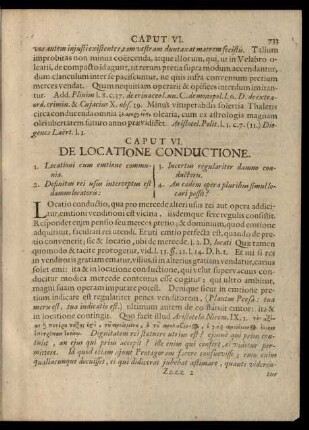 CAPUT VI. 733
vos autem injusti existentes, eam vestram duntaxat matrem fecistis. Talium
improbitas non minus coërcenda, atque illorum, qui, ut in Velabro o-
learii, de compositò agunt, ut rerum pretia supra modum accendantur,
dum clanculum inter se paciscuntur, ne quis infra conventum pretium
merces vendat. Quam nequitiam operarii & opifices interdum imitan-
tur. Add. Plinium l. 8. c. 37. de erinaceo. l. un. C. de monopol. l. 6. D. de extra-
ord. crimin. & Cujacius X. obs. 19. Minus vituperabilis solertia Thaletis
circa conducenda omnia olearia, cum ex astrologia magnam
olei ubertatem futuro anno prævidisset. Aristotel. Polit. l. 1. c. 7. (11.) Dio-
genes Laërt. l. 1.
CAPUT VI.
DE LOCATIONE CONDUCTIONE.
1. Locationi cum emtione commu-
nia.
2. Defuitus rei usus interceptus est
damnum locatoris:
3. Incertus regulariter damno con-
ductoris.
4. An eadem opera pluribus simul lo-
cari possit?
LOcatio conductio, qua pro mercede alteri usus rei aut opera addici-
tur, emtioni venditioni est vicina, iisdemque fere regulis consistit.
Respondet enim merces seu pensio pretio; & dominium, quod emtione
adquiritur, facultati re aliena utendi. Et uti emtio perfecta est, quando de pre-
tio convenit; sic & locatio, ubi de mercede. l. 2. D. locati Quæ tamen
quomodo & tacite protogetur, vid. l. 13. §. 11. l. 14. D. h. t. Et uti si res in
venditione in gratiam emtoris, vilius, si in alterius gratiam vendatur, carius
solet emi: ita & in locatione conductione, qui velut supervacuus condu-
citur modica mercede contentus esse cogitur; qui ultro ambitur,
magni suam operam imputare potest. Denique sicut in emtione pre-
tium indicare est regulariter penes venditorem, (Plautus Persa: tua
merx est, tua indicatio est) ultimum autem de constituit emtor: ita &
in locatione contingit. Quo facit illud Aristotelis Nicom. IX. 1.
Dignitatem rei statuere utrius est? ejusne qui prius con-
tulit, an ejus qui prius accepit? iste enim qui confert, ei videtur per-
mittere. Id quod etiam ajunt Protagoram facere consuevisse: cum enim
qualiacunque docuisset, ei qui didicerat jubebat æstimare, quanti videren-
Zzzz 2 tur